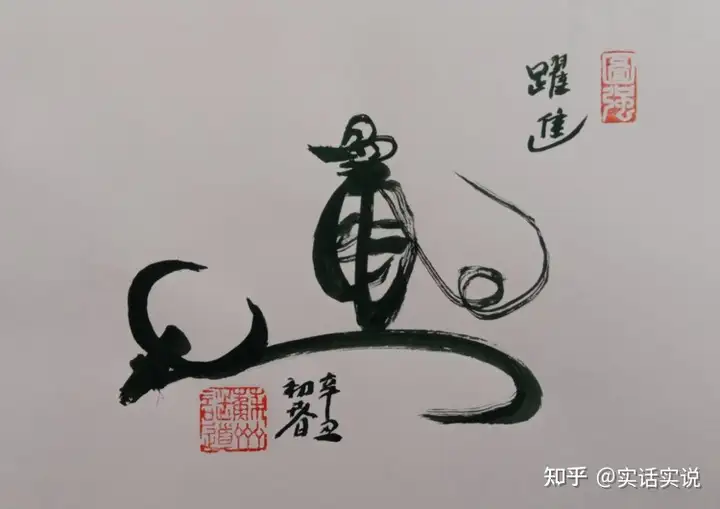 圖强
躍進
辛丑
初春
知乎 @实话实说